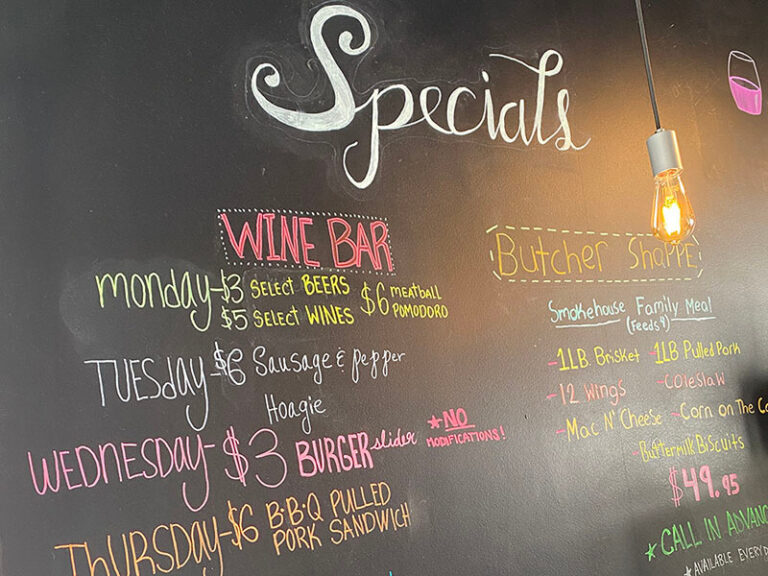 Specials
WINE BAR
Monday-$3 SELECT BEERS $6 MEATBALL
$5 SELECT WINES POMODORO
TUESday-$6 Sausage & pepper
Hoagie
WEDNESDAY-$3 BURGER slider *NO
MODIFICATIONS!
THURSDAY-$6 B·B·Q PULLED
PORK SANDWICH
Butcher Shoppe
Smokehouse Family Meal
(Feeds 4)
-1LB Brisket -1LB Pulled Pork
-12 Wings -Coleslaw
-Mac N' Cheese -Corn on The
-Buttermilk Biscuits
$49.95
*CALL IN
*AVAILABLE